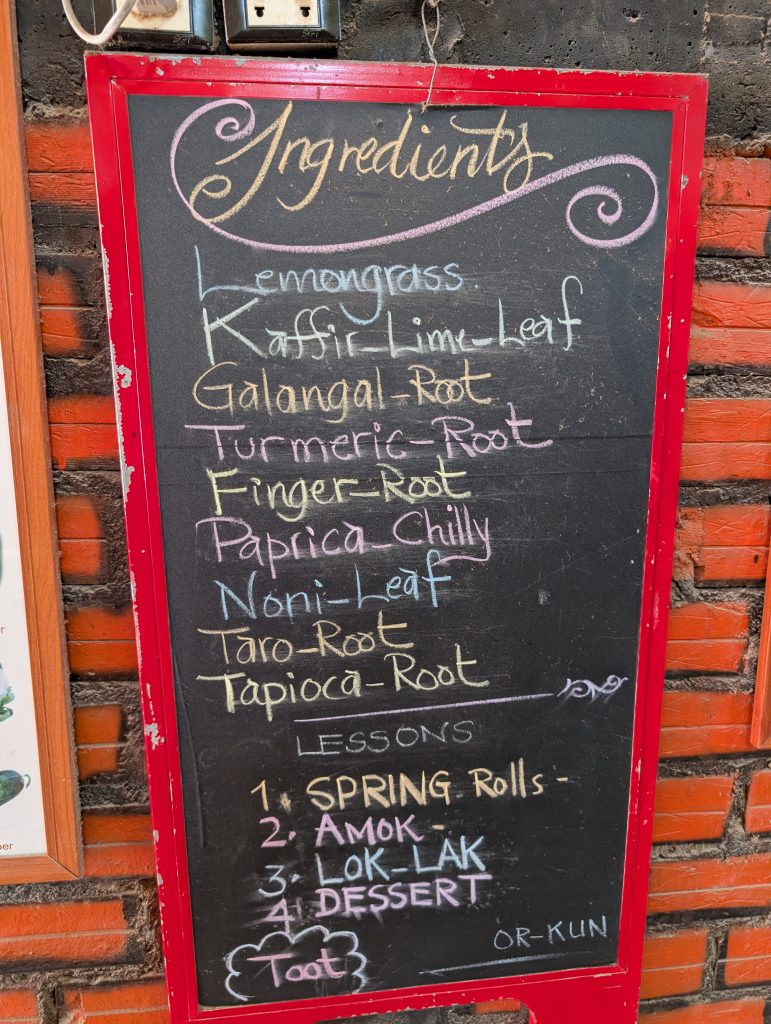 Ingredients
Lemongrass.
Kaffir-Lime-Leaf
Galangal-Root
Turmeric-Root
Finger-Root
Paprica-Chilly
Noni-Leaf
Taro-Root
Tapioca-Root
LESSONS
1. SPRING Rolls-
2. AMOK-
3. LOK-LAK
4 DESSERT
OR-KUN
Toot